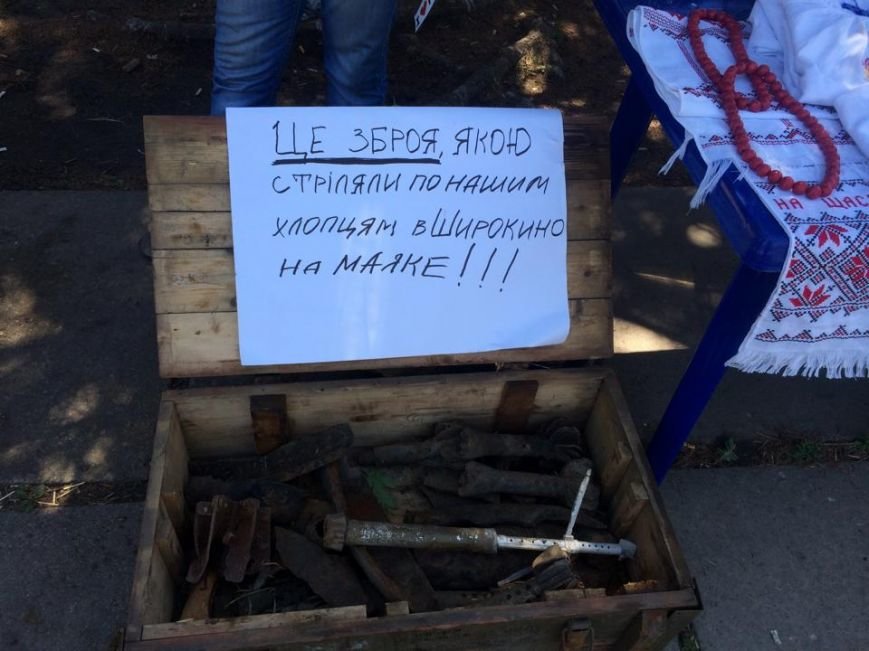 ЦЕ ЗБРОЯ, ЯКОЮ
СТРІЛЯЛИ ПО НАШИМ
ХЛОПЦЯМ В ШИРОКИНО
НА МАЯКЕ!!!
НА ЩАС